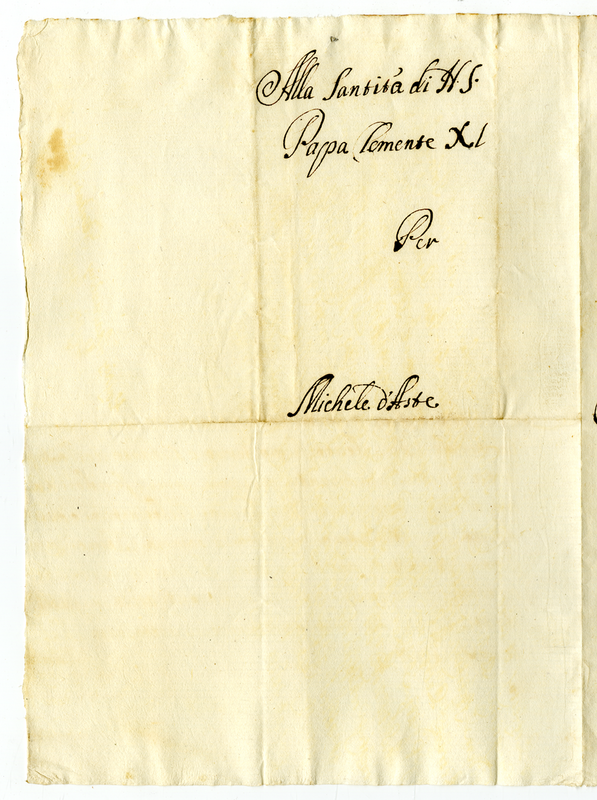 Alla Santità di N. S.
Papa Clemente XI
Per
Michele d'Aste